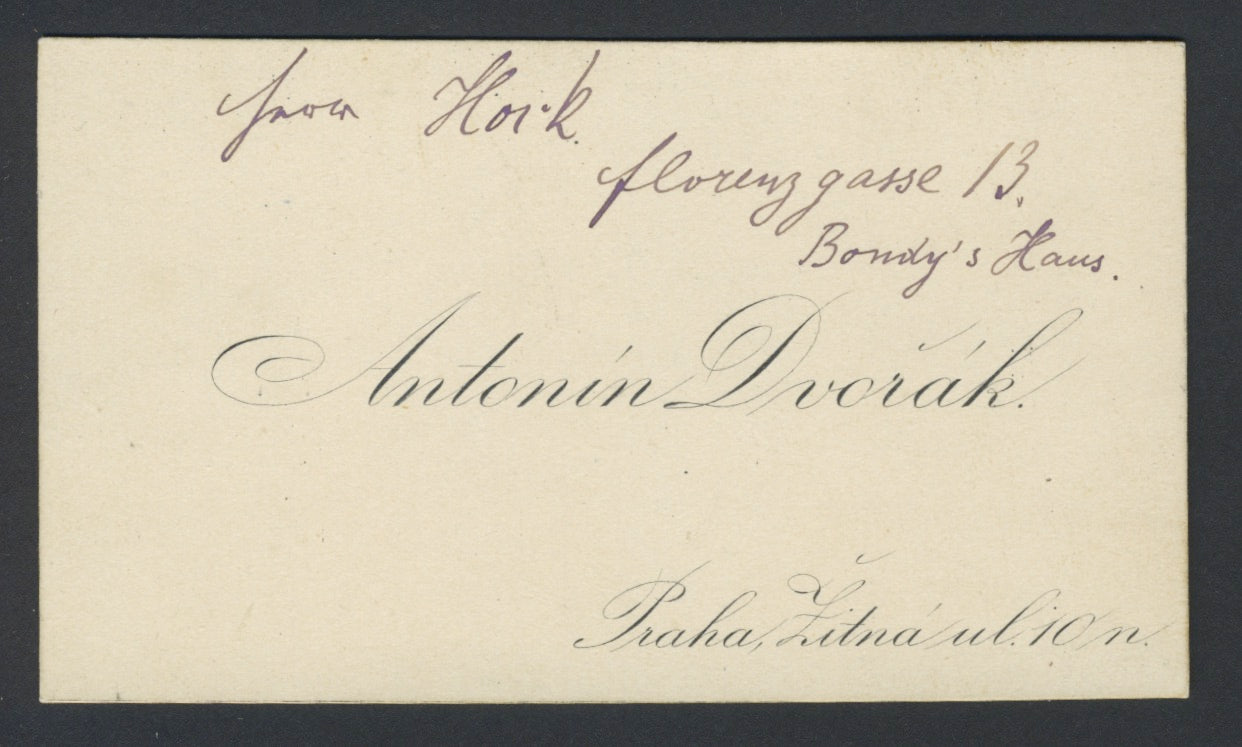 Herr Hork.
florenzgasse 13.
Bondy's Haus.
Antonín Dvořák.
Praha, Žitná ul. 10 n.